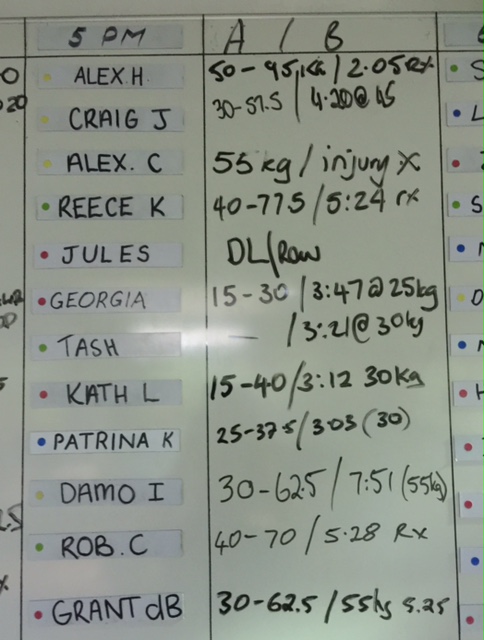 5 PM A / B
ALEX.H 50-95kg / 2.05Rx
CRAIG J 30-57.5 / 4.20@45
ALEX. C 55kg / injury X
REECE K 40-775 / 5:24 rx
JULES DL/Row
GEORGIA 15-30 / 3:47@25kg
TASH — / 3:21@30kg
KATH L 15-40/3:12 30Kg
PATRINA K 25-37.5 / 3:03 (30)
DAMO I 30-62.5 / 7:51 (55kg)
ROB.C 40-70 / 5.28 Rx
GRANT dB 30-62.5 / 55kg 5.25